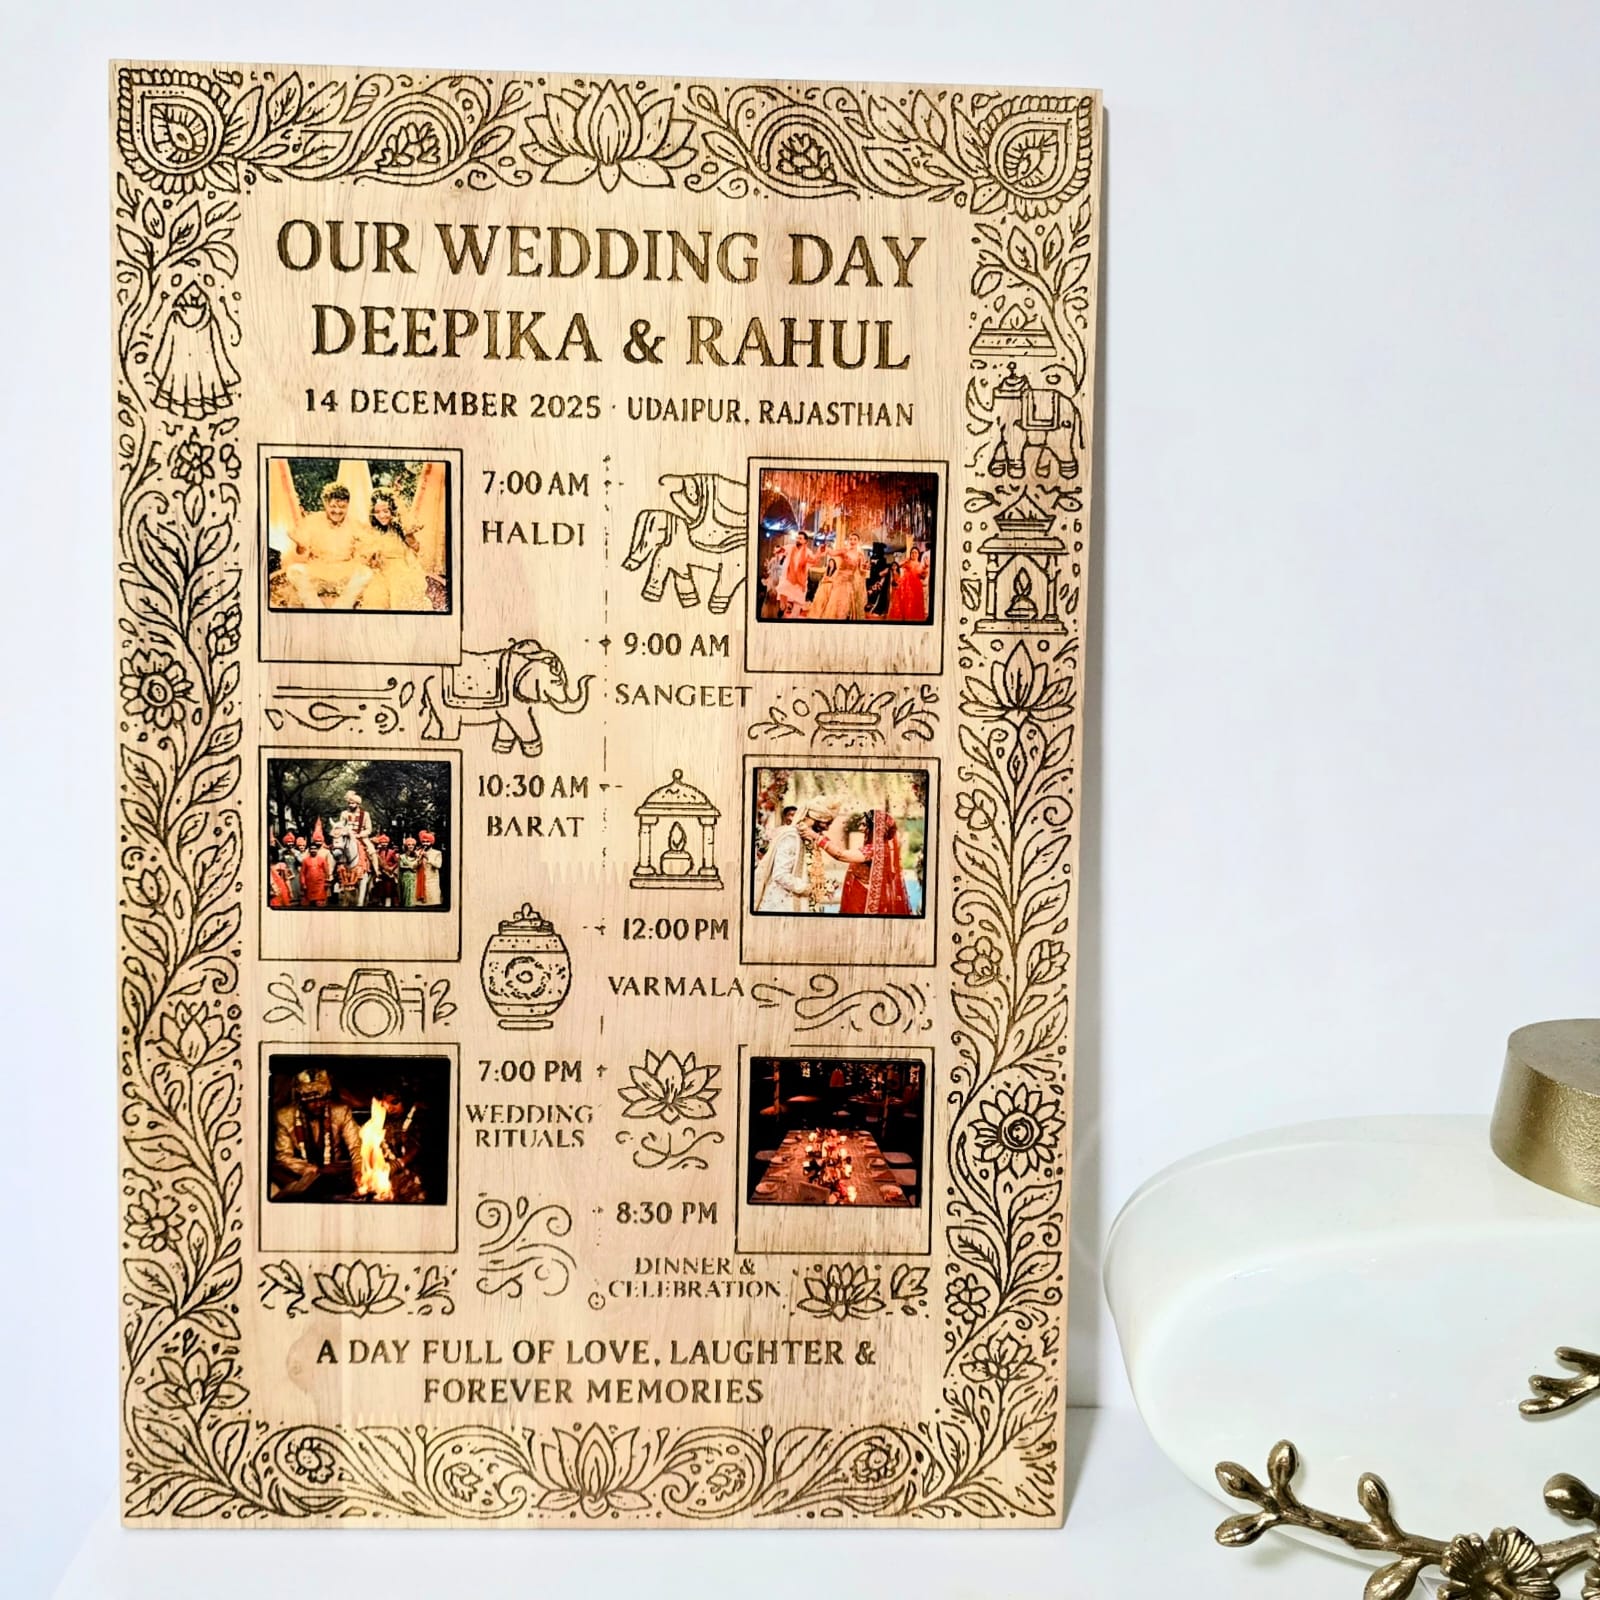 OUR WEDDING DAY
DEEPIKA & RAHUL
14 DECEMBER 2025 · UDAIPUR, RAJASTHAN
7:00 AM
HALDI
9:00 AM
SANGEET
10:30 AM
BARAT
12:00 PM
VARMALA
7:00 PM
WEDDING
RITUALS
8:30 PM
DINNER &
CELEBRATION
A DAY FULL OF LOVE, LAUGHTER &
FOREVER MEMORIES